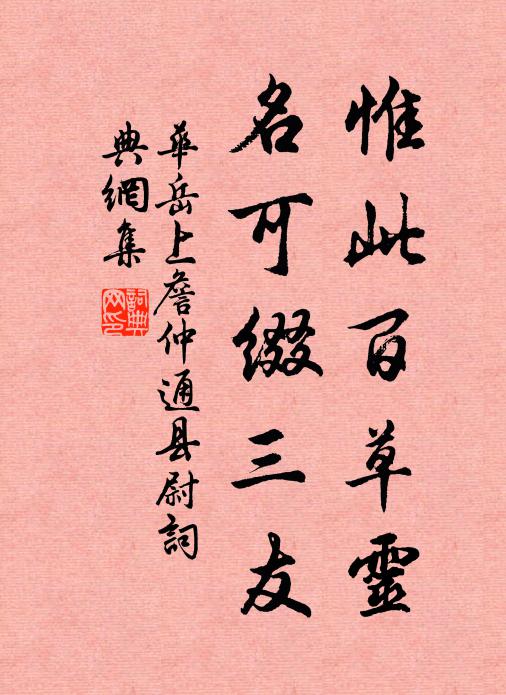 惟此百草靈
名可缀三友
華岳上詹仲通县尉詞
典網集
詞典
网印